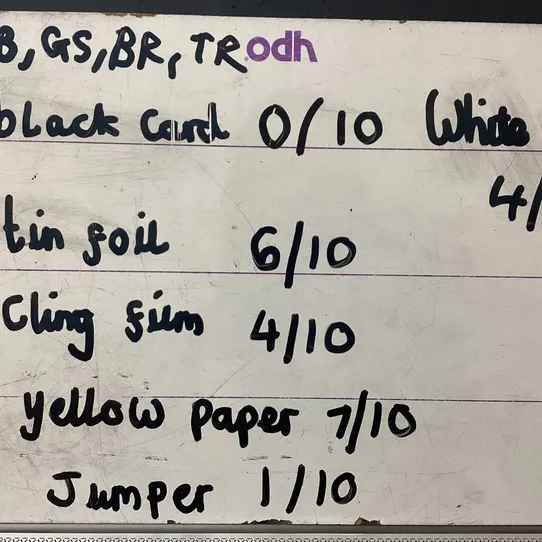 B, GS, BR, TR odh
black Card 0/10 White
4/
tin foil 6/10
Cling film 4/10
yellow paper 7/10
Jumper 1/10